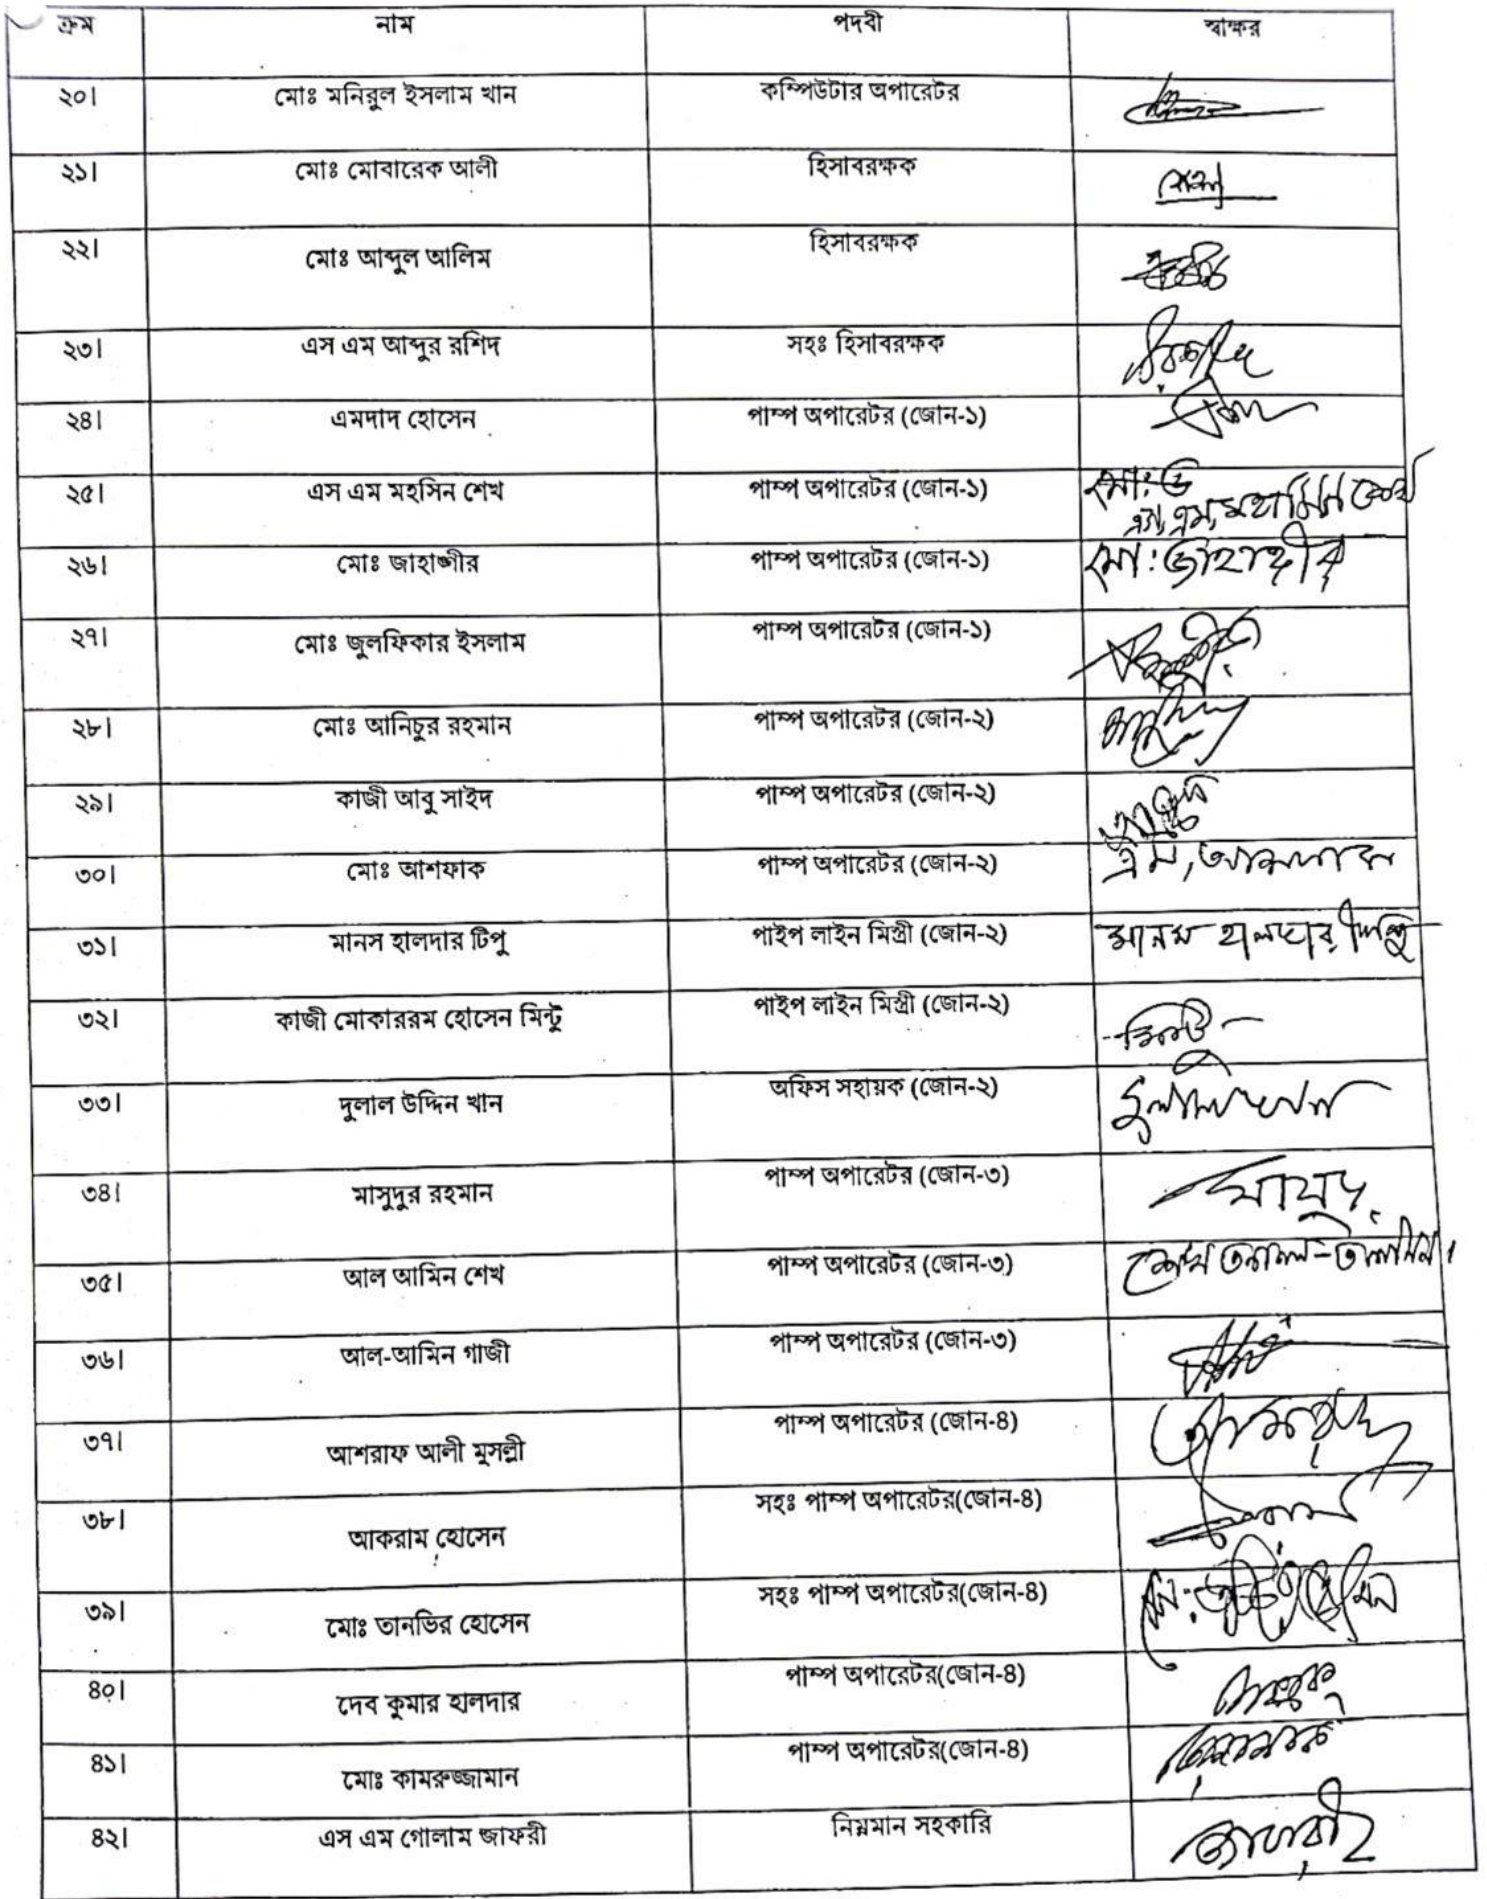 ক্রম নাম পদবী স্বাক্ষর
২০। মোঃ মনিরুল ইসলাম খান কম্পিউটার অপারেটর
২১। মোঃ মোবারেক আলী হিসাবরক্ষক
২২। মোঃ আব্দুল আলিম হিসাবরক্ষক
২৩। এস এম আব্দুর রশিদ সহঃ হিসাবরক্ষক
২৪। এমদাদ হোসেন পাম্প অপারেটর (জোন-১)
২৫। এস এম মহসিন শেখ পাম্প অপারেটর (জোন-১)
২৬। মোঃ জাহাঙ্গীর পাম্প অপারেটর (জোন-১) মো: জাহাঙ্গীর
২৭। মোঃ জুলফিকার ইসলাম পাম্প অপারেটর (জোন-১)
২৮। মোঃ আনিচুর রহমান পাম্প অপারেটর (জোন-২)
২৯। কাজী আবু সাইদ পাম্প অপারেটর (জোন-২)
৩০। মোঃ আশফাক পাম্প অপারেটর (জোন-২)
৩১। মানস হালদার টিপু পাইপ লাইন মিস্ত্রী (জোন-২) মানস হালদার টিপু
৩২। কাজী মোকাররম হোসেন মিন্টু পাইপ লাইন মিস্ত্রী (জোন-২)
৩৩। দুলাল উদ্দিন খান অফিস সহায়ক (জোন-২)
৩৪। মাসুদুর রহমান পাম্প অপারেটর (জোন-৩) মাসুদ
৩৫। আল আমিন শেখ পাম্প অপারেটর (জোন-৩)
৩৬। আল-আমিন গাজী পাম্প অপারেটর (জোন-৩)
৩৭। আশরাফ আলী মুসল্লী পাম্প অপারেটর (জোন-৪)
৩৮। আকরাম হোসেন সহঃ পাম্প অপারেটর(জোন-৪)
৩৯। মোঃ তানভির হোসেন সহঃ পাম্প অপারেটর(জোন-৪)
৪০। দেব কুমার হালদার পাম্প অপারেটর(জোন-৪)
৪১। মোঃ কামরুজ্জামান পাম্প অপারেটর(জোন-৪)
৪২। এস এম গোলাম জাফরী নিম্নমান সহকারি